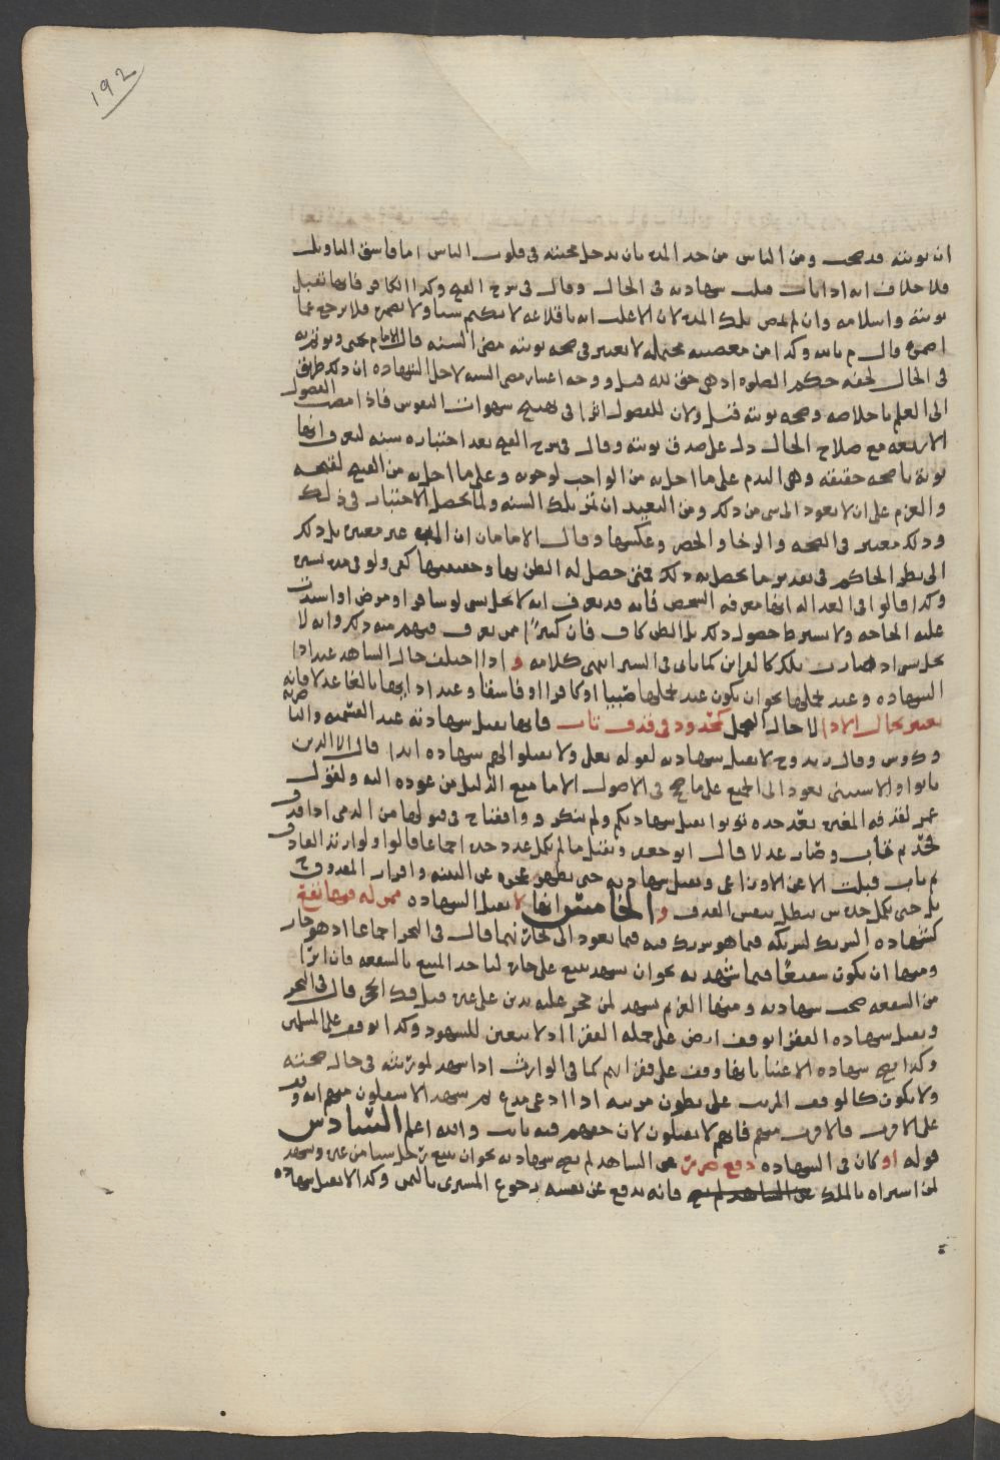 192
ان توبته قد صحت ومن الناس من حد المده بان يدخل محبته في قلوب الناس اما فاسق التاويل
فلا خلاف انه اذا تاب قبلت شهادته في الحال وقال في شرح الفتح وكذا الكافر فانها تقبل
توبته واسلامه وان لم تمض تلك المده لان الاغلب انه باقلاعه لا يكتم شيئا ولا يضمره فلا يرجع عما
اضمره قال م بالله وكذا من معصيته محتمله لا تعتبر في صحه توبته مضي السنه قال الامام يحيى وتوبته
في الحال لحقه حكم الصلوه اذ هي حق لله قيل ووجه اعتبار مضي السنه لاجل الشهاده ان ذلك طريق
الى العلم باخلاصه وصحه توبته قيل ولان للفصول اثرا في تهييج شهوات النفوس فاذا مضت الفصول
الاربعه مع صلاح الحال دل على صدق توبته وقال في شرح الفتح بعد اختباره سنه لتعرف انها
توبة ناصحه حقيقه وهي الندم على ما اخل به من الواجب لوجوبه وعلى ما اخل به من القبيح لقبحه
والعزم على ان لا يعود الى شي من ذلك ومن البعيد ان تمر تلك السنه ولما يحصل الاختبار في ذلك
وذلك معتبر في الصحه والرخا والحضر وعكسها وقال الامامان ان المده غير معتبره بل ذلك
الى نظر الحاكم في تقدير ما يحصل به ذلك فمتى حصل له الظن بها وحقيقتها كفى ولو في مده يسيره
وكذا قالوا في العداله انها معرفه الشخص فانه قد يعرف انه لا يخل بشي لو سافر او مرض او اشتدت
عليه الحاجه ولا يشترط حصول ذلك بل الظن كاف فان كثيرًا ممن يعرف فيهم منه ذلك وانه لا
يخل بشي اذ صارت تلك كالقراين كما ياتي في السير انتهى كلامه و اذا اختلف حال الشاهد عند ادا
الشهاده وعند تحملها نحو ان يكون عند تحملها صبيا او كافرا او فاسقا وعند ادايها بالغا عدلا فانه
يعتبر بحال الادا لا حال التحمل كمحدود في قذف تاب فانها تقبل شهادته عند العتره والنا
وك وس وقال زيد وح لا تقبل شهادته لقوله تعلى ولا تقبلوا لهم شهاده ابدا قال الا الذين
تابوا والاستثنى يعود الى الجميع على ما صح في الاصول الا ما منع الدليل من عوده اليه ولقول
عمر لقذفه المغيره بعد حده توبوا تقبل شهادتكم ولم ينكر و وافقنا ح في قبولها من الذمي اذا قذف
فحد ثم تاب وصار عدلا قال ابو جعفر وتقبل ما لم يكمل عدد حده اجماعا قالوا ولو ارتد القاذف
ثم تاب قبلت الا عن الاوزاعي وتقبل شهادته حتى يظهر عجزه عن البينه واقرار المقذوف ح
بل حتى يكمل حده س تبطل بنفس القذف و الخامس انها لا تقبل الشهاده ممن له فيها نفع
كشهاده الشريك لشريكه فيما هو شريك فيه فيما يعود الى تجارتهما قال في البحر اجماعا اذ هو جار
ومنها ان يكون شفيعًا فيما شهد به نحو ان يشهد ببيع على جاره لياخذ المبيع بالشفعه فان ابرا
من الشفعه صحت شهادته ومنها الغريم يشهد لمن حجر عليه بدين على غيره قبل فك الحجر قال في البحر
وتقبل شهاده الفقرا بوقف ارض على جمله الفقرا اذ لا يتعين للشهود وكذا بوقف على المسلمين
وكذا تصح شهاده الاغنيا بانها وقف على فقرائهم كما في الوارث اذا شهد لمورثه في حال صحته
ولا يكون كالوقف المرتب على بطون مرتبه اذا ادعى مدع ثم شهد الاسفلون منهم انه وقف
على الاقرب فالاقرب منهم فانهم لا يقبلون لان حقهم فيه ثابت والله اعلم السادس
قوله او كان في الشهاده دفع ضرر عن الشاهد لم تصح شهادته نحو ان يبيع رجل شيا من غيره ويشهد
لمن اشتراه بالملك عن الشاهد لم تصح فانه يدفع عن نفسه رجوع المشترى بالثمن وكذا لا تقبل شهاده